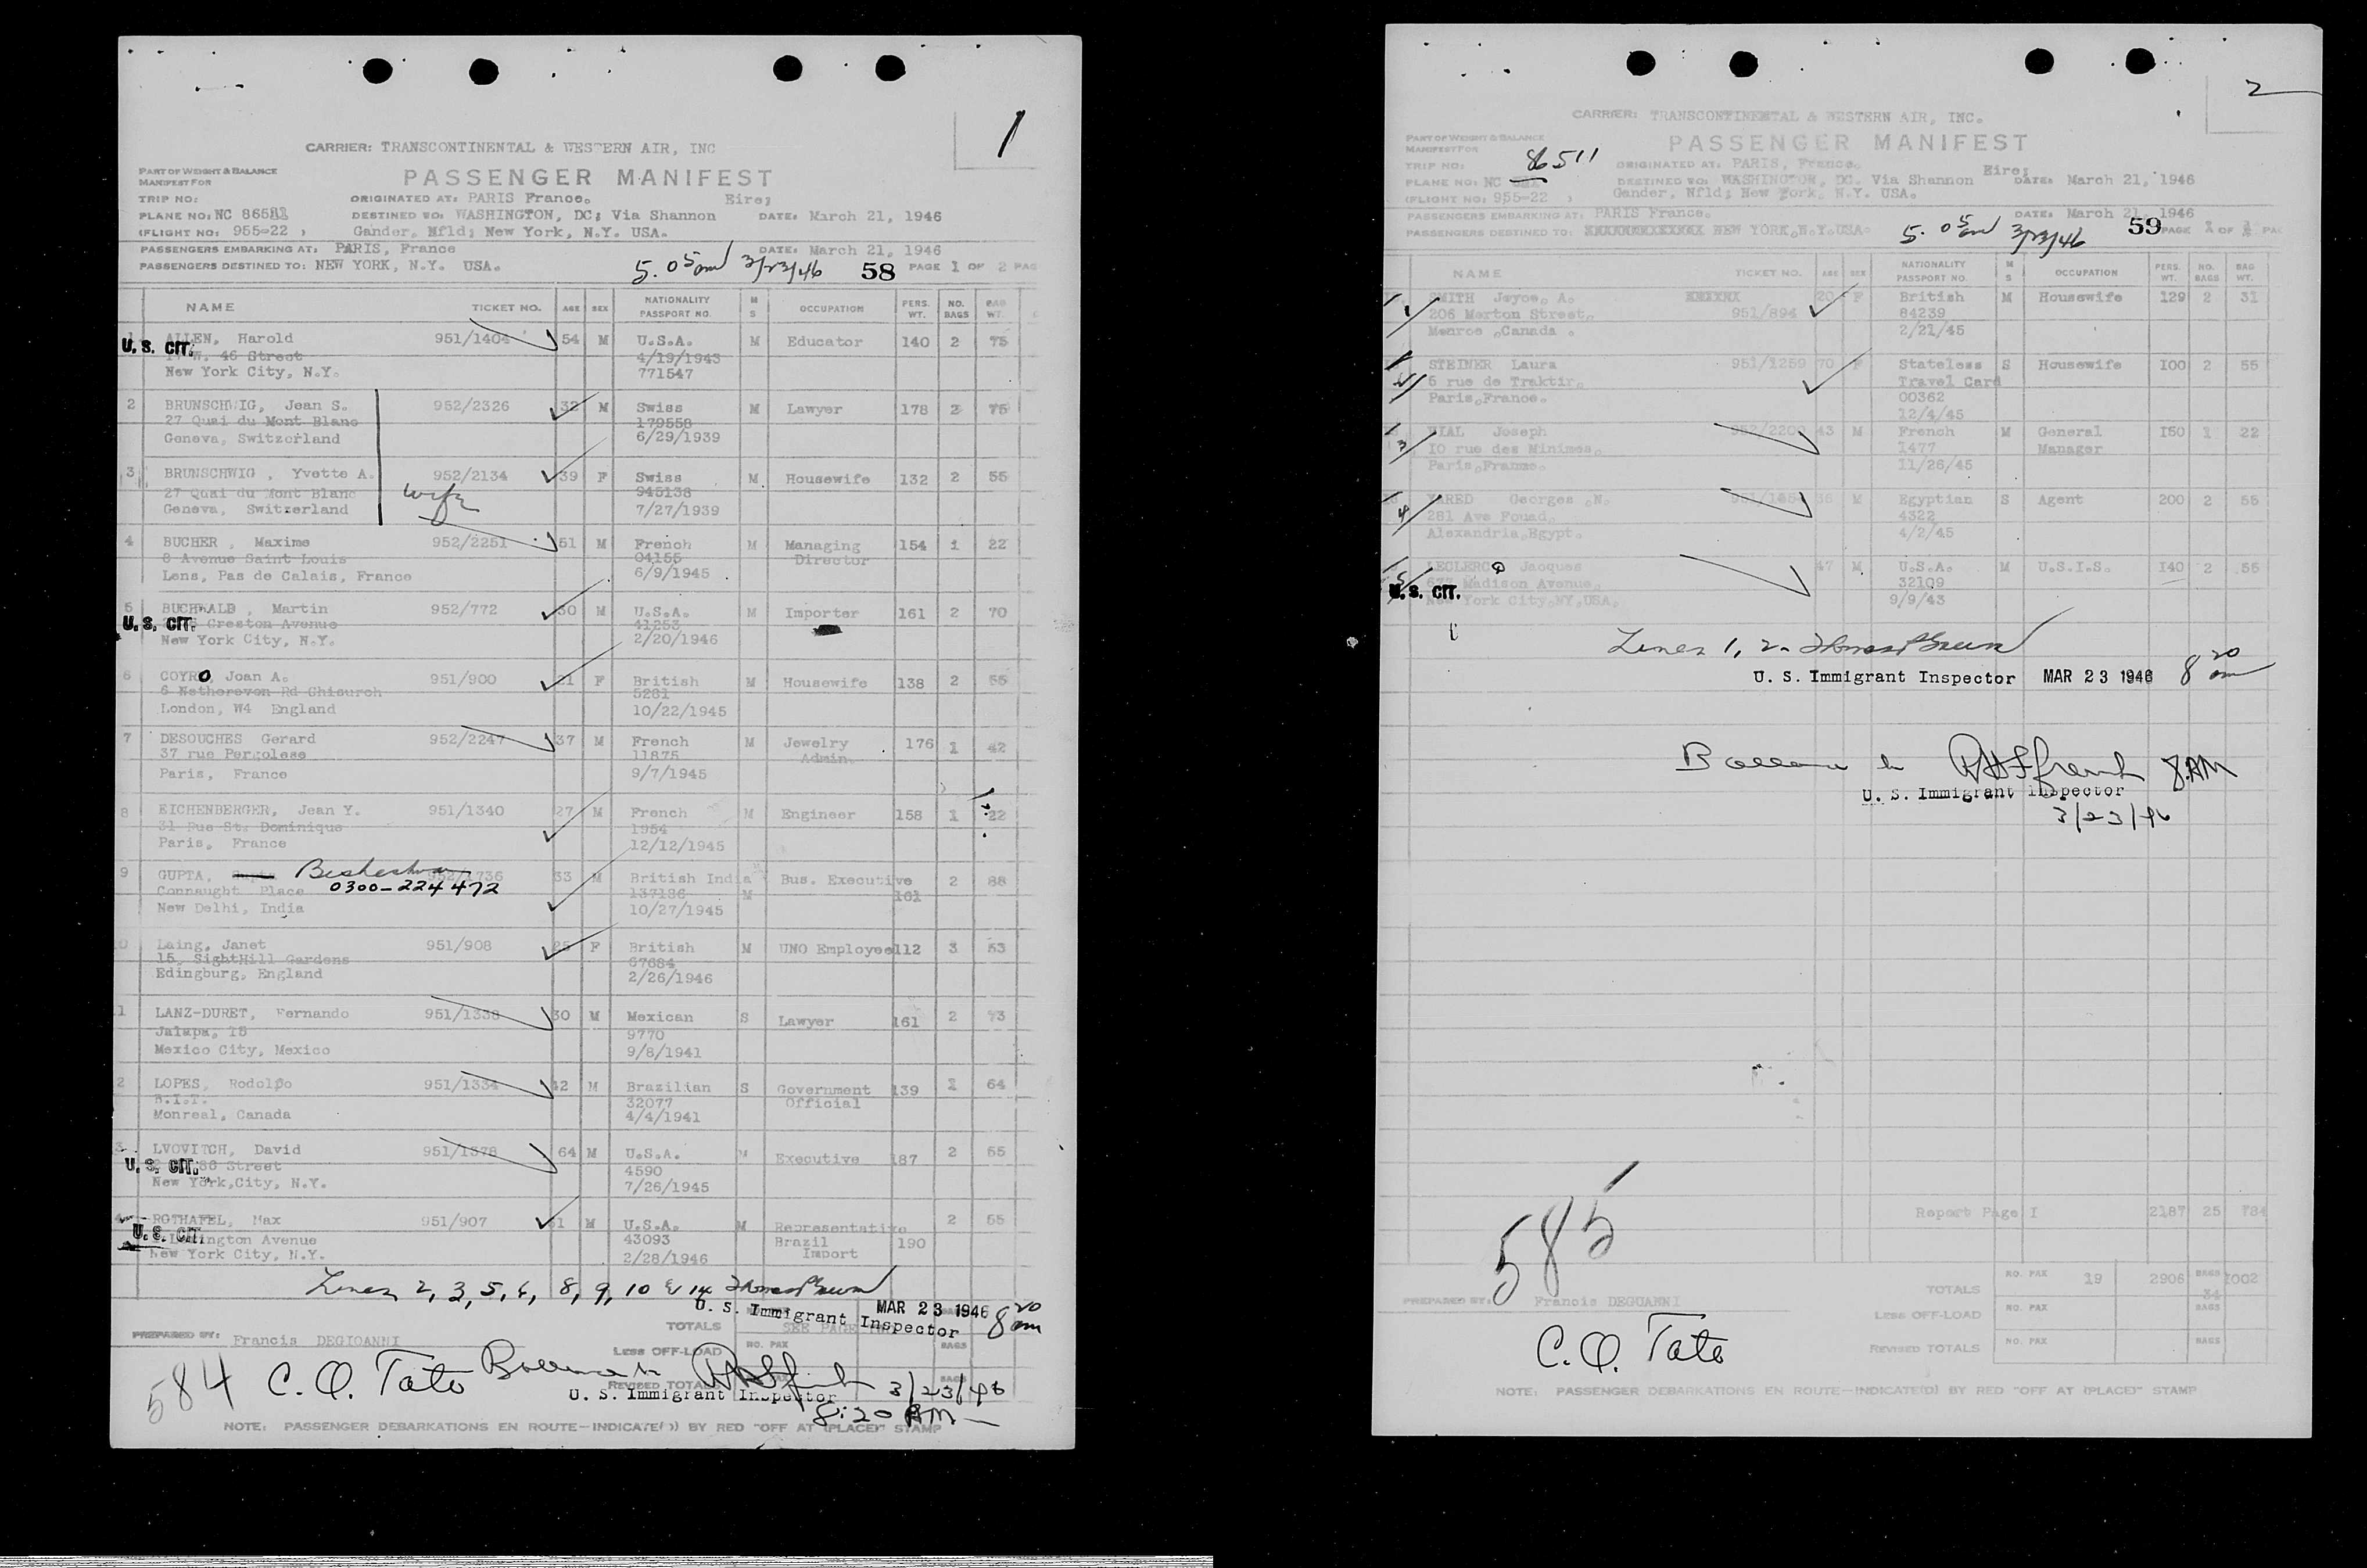 1
CARRIER: TRANSCONTINENTAL & WESTERN AIR, INC
PART OF WEIGHT & BALANCE
MANIFEST FOR
PASSENGER MANIFEST
TRIP NO:
ORIGINATED AT: PARIS France. Eire;
PLANE NO: NC 865
DESTINED TO: WASHINGTON, DC; Via Shannon DATE: March 21, 1946
(FLIGHT NO: 955-22 ) Gander, Nfld; New York, N.Y. USA.
PASSENGERS EMBARKING AT: PARIS, France DATE: March 21, 1946
PASSENGERS DESTINED TO: NEW YORK, N.Y. USA. 5.05am 3/23/46 58 PAGE 1 OF 2 PAG
NAME TICKET NO. AGE SEX NATIONALITY PASSPORT NO. M S OCCUPATION PERS. WT. NO. BAGS BAG WT.
1 ALLEN, Harold 951/1404 54 M U.S.A. M Educator 140 2 75
U.S. CIT. W. 46 Street 4/19/1943
New York City, N.Y. 771547
2 BRUNSCHWIG, Jean S. 952/2326 32 M Swiss M Lawyer 178 2 75
27 Quai du Mont Blanc 179558
Geneva, Switzerland 6/29/1939
3 BRUNSCHWIG , Yvette A. 952/2134 39 F Swiss M Housewife 132 2 55
27 Quai du Mont Blanc wife 945138
Geneva, Switzerland 7/27/1939
4 BUCHER , Maxime 952/2251 51 M French M Managing 154 1 22
8 Avenue Saint Louis 04155 Director
Lens, Pas de Calais, France 6/9/1945
5 BUCHWALD , Martin 952/772 30 M U.S.A. M Importer 161 2 70
U.S. CIT. Creston Avenue 41253
New York City, N.Y. 2/20/1946
6 COYRO Joan A. 951/900 F British M Housewife 138 2 55
6 Netheravon Rd Chisurch 5281
London, W4 England 10/22/1945
7 DESOUCHES Gerard 952/2247 37 M French M Jewelry 176 1 42
37 rue Pergolese 11875 Admin.
Paris, France 9/7/1945
8 EICHENBERGER, Jean Y. 951/1340 27 M French M Engineer 158 1 22
31 Rue St. Dominique 1954
Paris, France 12/12/1945
9 GUPTA, Bisheshwar 952/1736 33 M British India Bus. Executive 2 88
Connaught Place 0300-224472 137186 M 161
New Delhi, India 10/27/1945
0 Laing, Janet 951/908 25 F British M UNO Employee 112 3 53
15, SightHill Gardens 67684
Edingburg, England 2/26/1946
1 LANZ-DURET, Fernando 951/1338 30 M Mexican S Lawyer 161 2 73
Jalapa, 15 9770
Mexico City, Mexico 9/8/1941
2 LOPES, Rodolpo 951/1334 42 M Brazilian S Government 139 1 64
B.I.T. 32077 Official
Monreal, Canada 4/4/1941
3 LVOVITCH, David 951/1378 64 M U.S.A. M Executive 187 2 55
U.S. CIT. 86 Street 4590
New York,City, N.Y. 7/26/1945
ROTHAFEL, Max 951/907 M U.S.A. M Representative 2 55
U.S. CIT. Lexington Avenue 43093 Brazil 190
New York City, N.Y. 2/28/1946 Import
Lines 2, 3, 5, 6, 8, 9, 10 & 14
U. S. Immigrant Inspector MAR 23 1946 8 20 am
TOTALS SEE PAGE
PREPARED BY: Francis DEGIOANNI
LESS OFF-LOAD NO. PAX BAGS
584 C. Q. Tato Balance
REVISED TOTALS BAGS
U. S. Immigrant Inspector 3/23/46
8:20 AM
NOTE: PASSENGER DEBARKATIONS EN ROUTE—INDICATE(D) BY RED "OFF AT (PLACE)" STAMP
2
CARRIER: TRANSCONTINENTAL & WESTERN AIR, INC.
PART OF WEIGHT & BALANCE
MANIFEST FOR
PASSENGER MANIFEST
TRIP NO: 86511 ORIGINATED AT: PARIS, France. Eire;
PLANE NO: NC DESTINED TO: WASHINGTON, DC. Via Shannon DATE: March 21, 1946
(FLIGHT NO: 955-22 ) Gander, Nfld; New York, N.Y. USA.
PASSENGERS EMBARKING AT: PARIS France. DATE: March 21, 1946
PASSENGERS DESTINED TO: XXXXXXXXXXXXX NEW YORK,N.Y.USA. 5.05am 3/23/46 59 PAGE 2 OF PAG
NAME TICKET NO. AGE SEX NATIONALITY PASSPORT NO. M S OCCUPATION PERS. WT. NO. BAGS BAG WT.
1 SMITH Joyce, A. XXXXXX 20 F British M Housewife 129 2 31
206 Merton Street. 951/894 84239
Monroe ,Canada . 2/21/45
2 STEINER Laura 951/1259 70 F Stateless S Housewife 100 2 55
6 rue de Traktir. Travel Card
Paris,France. 00362
12/4/45
3 VIAL Joseph 952/2200 43 M French M General 150 1 22
10 rue des Minimes. 1477 Manager
Paris,France. 11/26/45
4 YARED Georges ,N. 36 M Egyptian S Agent 200 2 55
281 Ave Fouad. 4322
Alexandria,Egypt. 4/2/45
5 LECLERCQ Jacques 47 M U.S.A. M U.S.I.S. 140 2 55
U.S. CIT. Madison Avenue. 32109
New York City,NY,USA. 9/9/43
Lines 1, 2.
U. S. Immigrant Inspector MAR 23 1946 8 20 am
Balance 8 AM
U. S. Immigrant Inspector
3/23/46
585
Report Page I 2187 25 784
TOTALS NO. PAX 19 2906 BAGS 34 1002
PREPARED BY: Francis DEGUANNI
LESS OFF-LOAD NO. PAX BAGS
C. Q. Tato
REVISED TOTALS NO. PAX BAGS
NOTE: PASSENGER DEBARKATIONS EN ROUTE—INDICATE(D) BY RED "OFF AT (PLACE)" STAMP